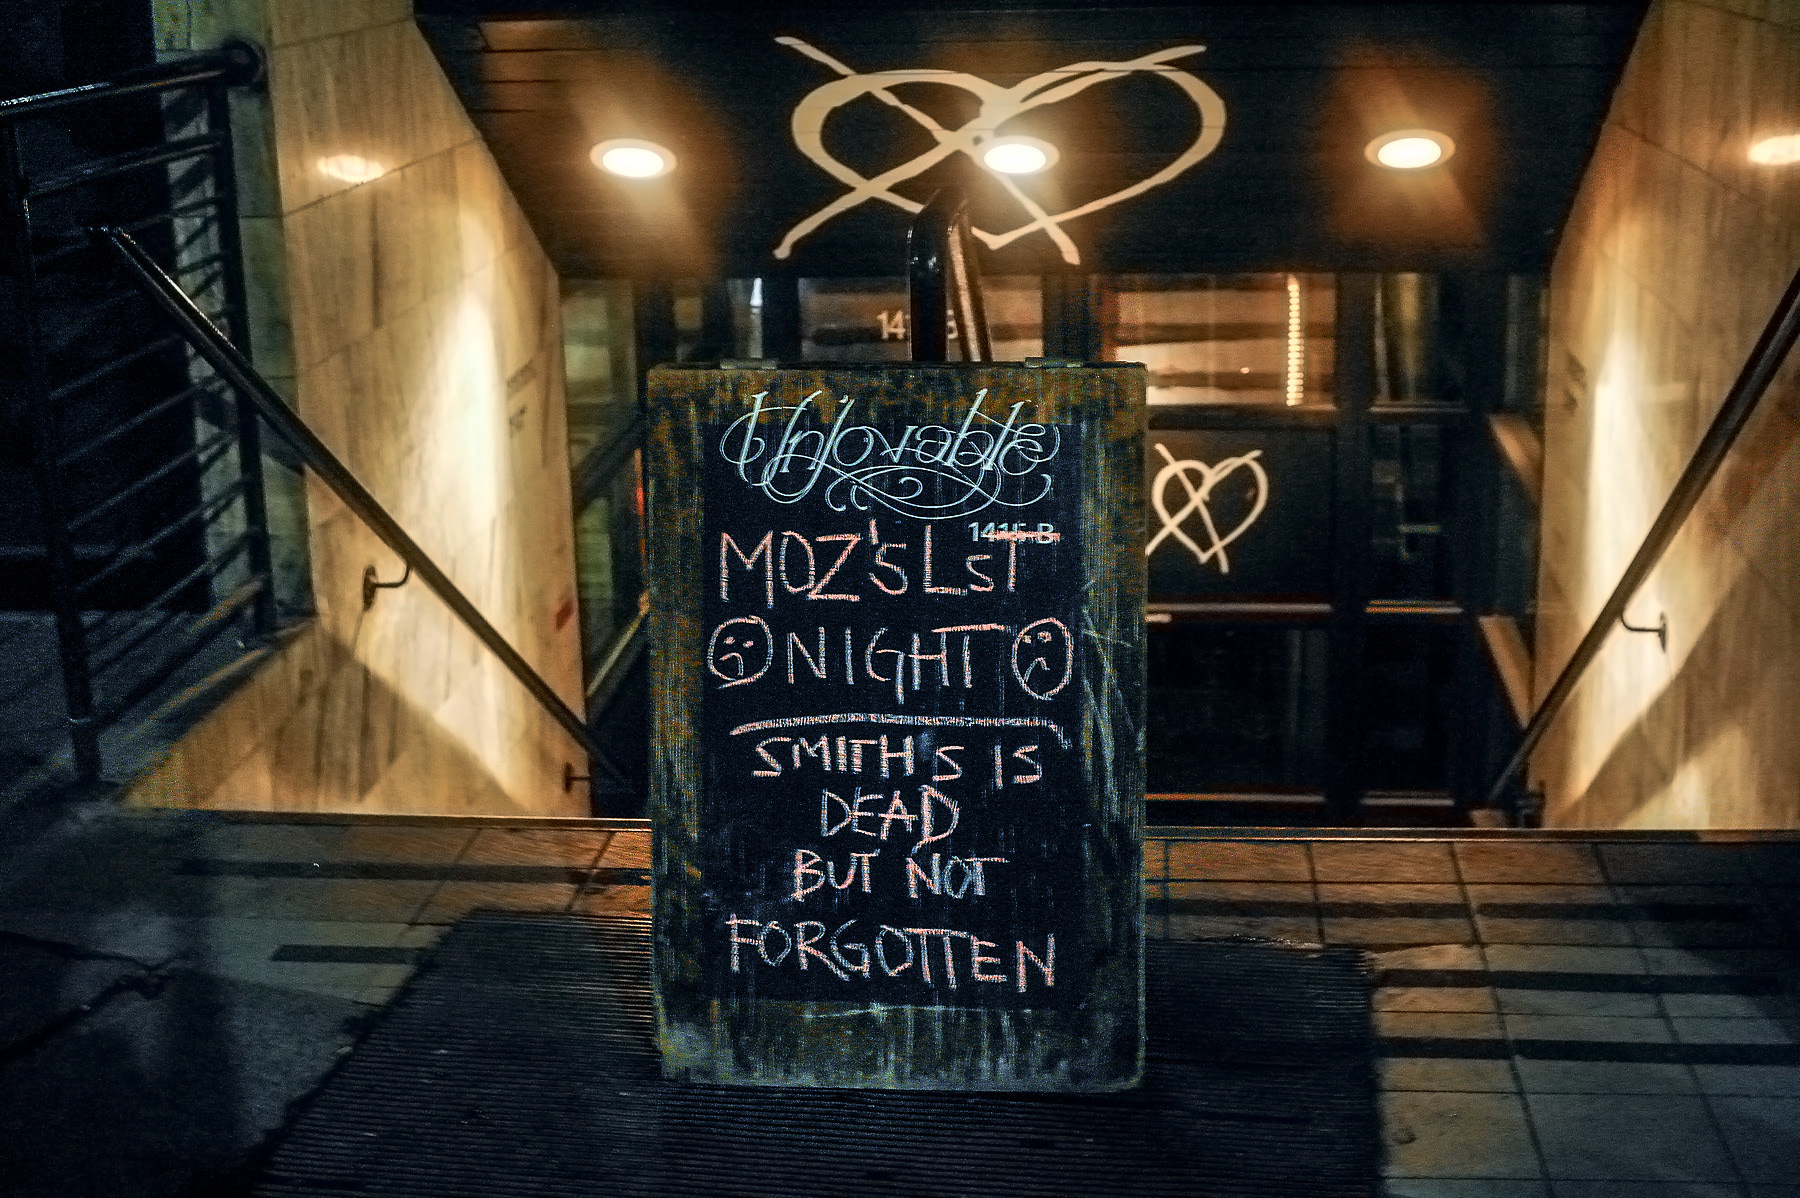 Unlovable
1415-B
MOZ'S LST
NIGHT
SMITH'S IS
DEAD
BUT NOT
FORGOTTEN